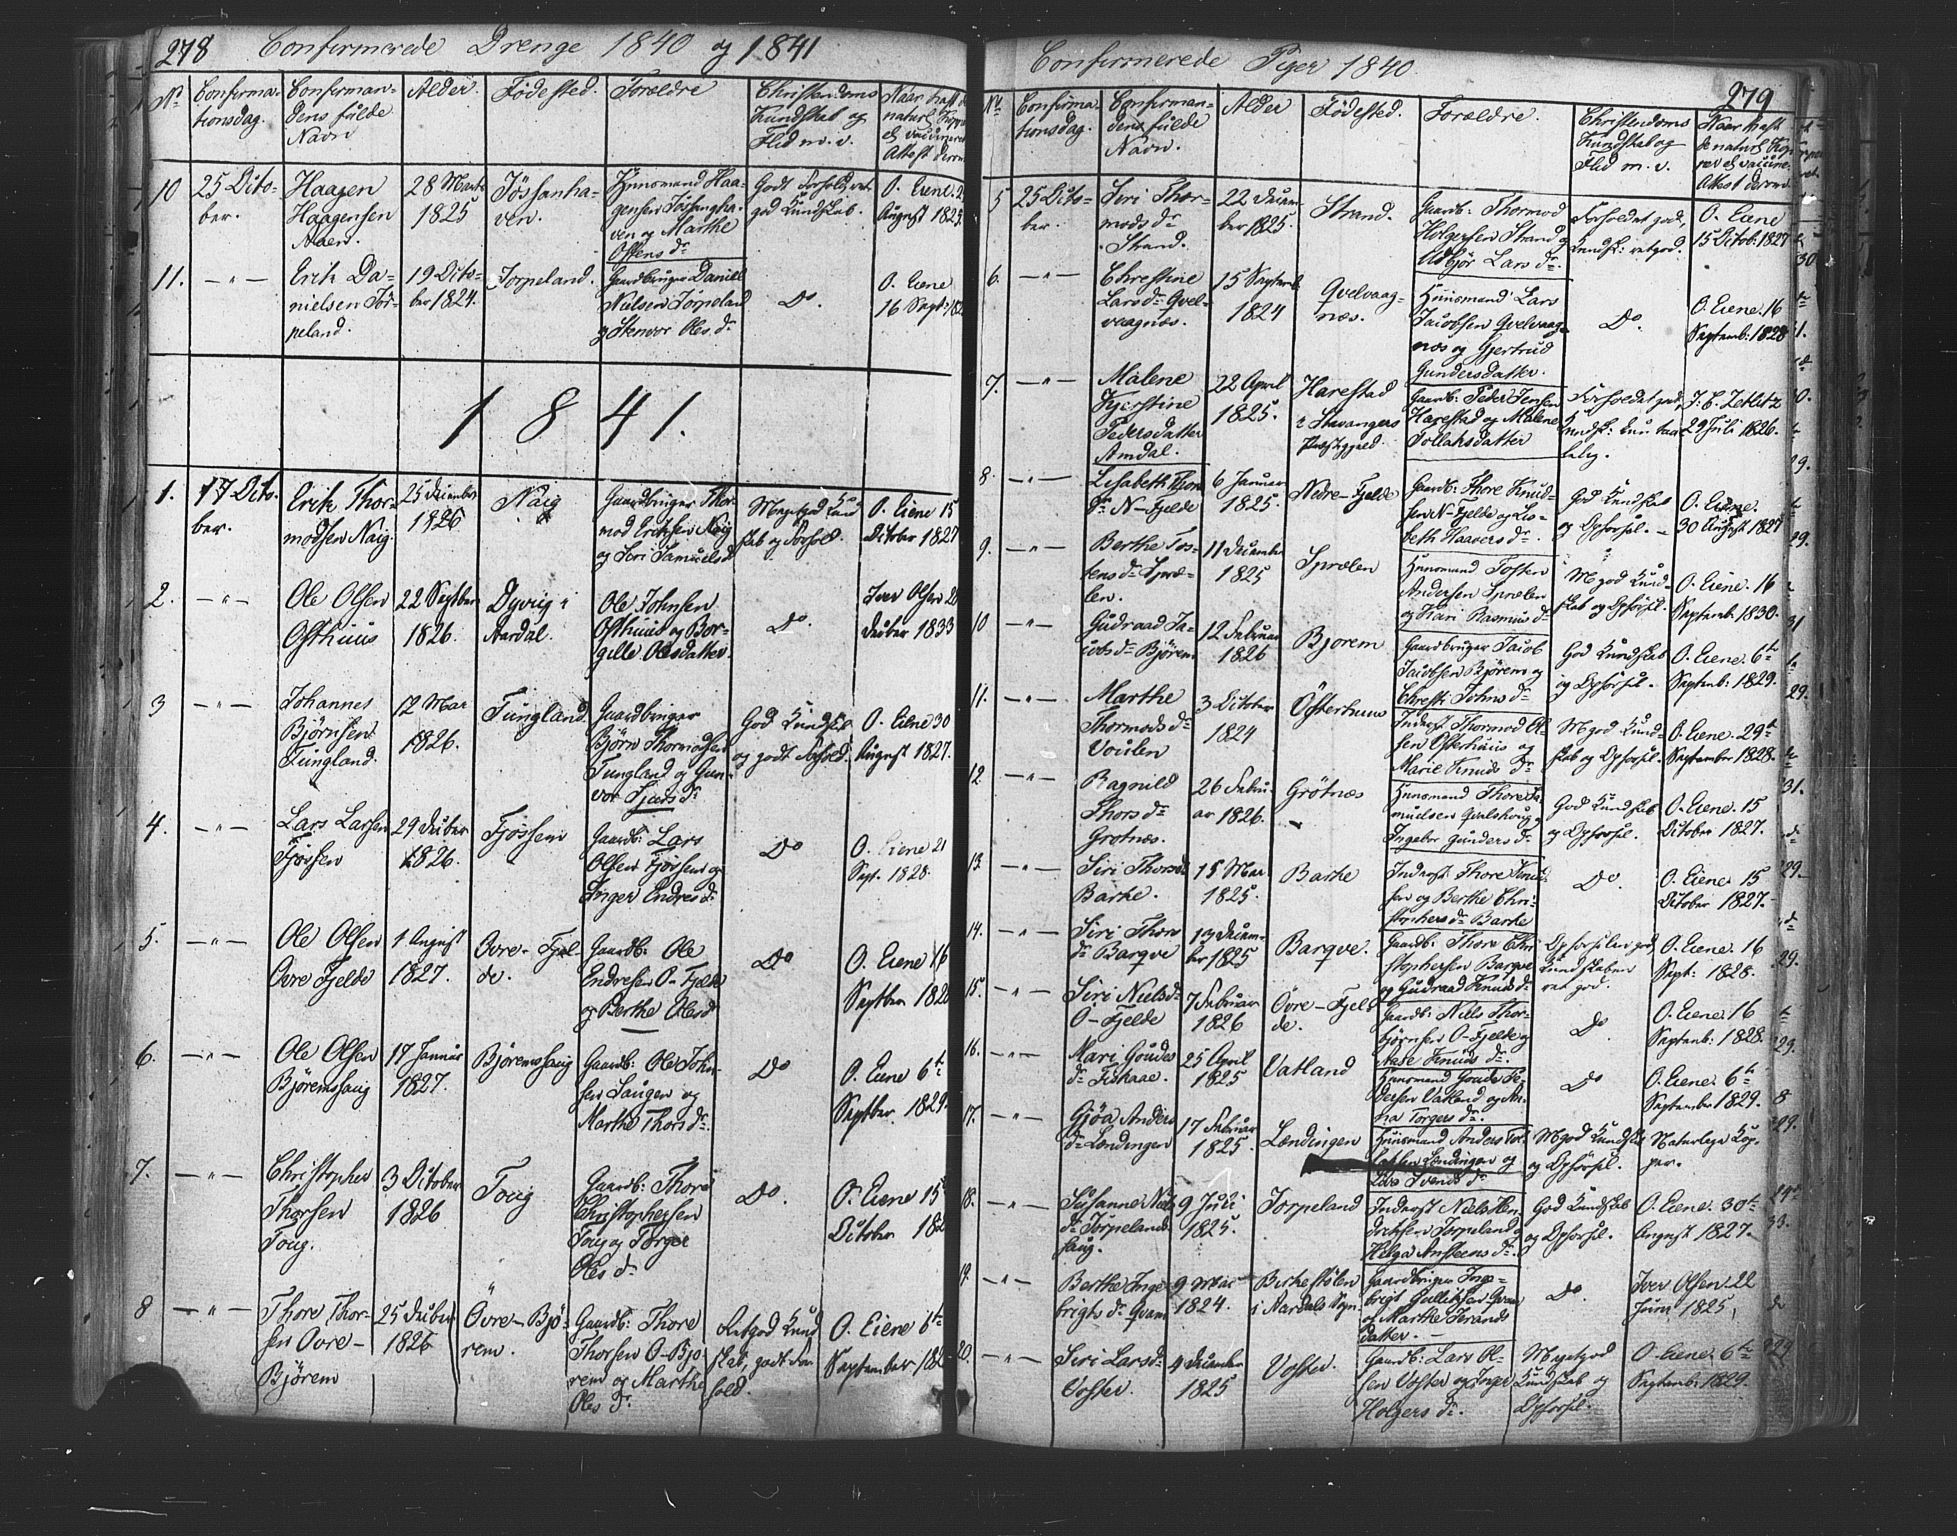 278 Confirmerede Drenge 1840 og 1841
No
Confirma-
tionsdag.
Confirman-
dens fulde
Navn
Alder.
Fødested.
Forældre
Christendoms
Kundskab og
Flid m. v.
Naar haft de
naturl. Kopper
el. vaccineret
Attest derom
10
25 Octo-
ber.
Haagen
Haagensen
28 Marts
1825
Jössanha-
ven.
Huusmand Haa-
gensen Jösangha-
ven og Marthe
Ossens Dr
Godt Forhold, ret
god Kundskab.
O. Eiene
August 1825
11.
— " —
Erik Da-
nielsen Tör-
peland.
19 Octo-
ber 1824.
Torpeland.
Gaardbruger Daniel
Nielsen Törpeland
og Stenvor Oles Dr
Do.
O. Eiene
16 Sept.
1841.
1.
17 Octo-
ber.
Erik Thor-
modsen Naig
25 December
1826
Naig
Gaardbruger Thor-
mod Eriksen Naig
og Siri Samuels D
Meget god Kund
skab og Forhold.
O. Eiene 15
October 1827
2.
— " —
Ole Olsen
Osthuus
22 Septber
1826.
Dyvig i
Aardal.
Ole Johnsen
Osthuus og Bor-
gille Olesdatter.
Do
Iver Olsen 2
Decber 1833
3
— " —
Johannes
Björnsen
Tungland.
12 Mar
1826.
Tungland.
Gaardbruger
Björn Thormodsen
Tungland og Gun-
vor Sjurs Dr
God Kundskb
og godt Forhold.
O. Eiene 30
August 1827.
4.
— " —
Lars Larsen
Tjössen
29 Decber
1826.
Tjössem
Gaardb: Lars
Olsen Tjössem og
Inger Endres Dr
Do
O. Eiene 21
Sept. 1828.
5.
— " —
Ole Olsen
Ovre Fjelde
1 August
1827.
Ovre-Fjel-
de.
Gaardb: Ole
Endresen O-Fjelde
og Berthe Oles Dr
Do
O. Eiene 16
Septber 182
6.
— " —
Ole Olsen
Björemshaug
17 Januar
1827.
Björemshaug
Gaardb: Ole John-
sen Haugen og
Marthe Thors Dr
Do
O. Eiene 6te
Septber. 1829.
7.
— " —
Christopher
Thorsen
Toug.
3 October
1826
Toug
Gaardb: Thore
Christophersen
Toug og Torger
Oles Dr
Do.
O. Eiene 15
October 182
8
— " —
Thore Thor-
sen Ovre-
Björem
25 Decber
1826
Övre-Bjö-
rem.
Gaardb: Thore
Thorsen O-Bjö
rem og Marthe
Oles Dr
Ret god Kund
skab, godt For
hold.
O. Eiene 6te
September 182
Confirmerede Piger 1840.
279
No.
Confirma-
tionsdag.
Confirman-
dens fulde
Navn.
Alder
Fødested.
Forældre.
Christendoms
Kundskab og
Flid m. v.
Naar haft
de naturl. Kop
per el. vaccine
Attest derom
5
25 Octo-
ber.
Siri Thor-
mods Dr
Strand.
22 Decem-
ber 1825.
Strand.
Gaardb: Thormod
Holgersen Strand og
Asbjör Lars Dr.
Forholdet god,
Kundsk: ret god.
O. Eiene
15 Octob: 1827
6.
— " —
Chrestine
Lars Dr Qvel-
vvagnæs.
15 Septemb
1824
Qvelvaag-
næs.
Huusmand Lars
Jacobsen Qvelvaag-
næs og Gjertrud
Gundersdatter.
Do
O. Eiene 16
Septemb: 1828
7.
— " —
Malene
Kjerstine
Pedersdatter
Amdal.
22 April
1825.
Harestad
i Stavangers
Præstegjeld
Gaardb: Peder Jensen
Harestad og Malene
Tollaksdatter
Forholdet god,
Kundsk: kun taa-
lelig.
J. C. Zetlitz
29 Juli 1826.
8.
— " —
Lisabeth Thors
Dr N-Fjelde
6 Januar
1825.
Nedre-Fjelde
Gaardb: Thore Knud-
sen N-Fjelde og Lis-
beth Haavers Dr
God Kundskab
og Opførsel. -
O. Eiene.
30 August 1827
9.
— " —
Berthe Tos-
tens Dr Spræ-
len.
11 December
1825
Sprælen
Huusmand Tosten
Andersen Sprælen
og Kari Rasmus Dr
Mgod Kund-
skab og Opførsel.
O. Eiene. 16
Septemb: 1830.
10
— " —
Gudraad Ja-
cobs Dr Björem
12 Februar
1826
Bjorem
Gaardbruger Jacob
Jacobsen Björem og
Chresti: Johns Dr
God Kundskab
og Opførsel.
O. Eiene. 6te
Septemb: 1829.
11.
— " —
Marthe
Thormods Dr
Voulen
3 October
1824
Österhuus
Inderst Thormod Ol-
sen Osterhuus og
Marie Knuds Dr
Mgod Kund-
skab og Opførsel.
O. Eiene. 29te
September 1828.
12.
— " —
Ragnild
Thors Dr
Grotnæs.
26 Febru-
ar 1826.
Grötnæs
Huusmand Thore Sa-
muelsen Qvalshoug og
Ingebor Gunders Dr
God Kundskab
og Opførsel.
O. Eiene. 15
October 1827.
13.
— " —
Siri Thorsd
Barke.
15 Mar
1825.
Barke
Inderst Thore Knud
sen og Berthe Chri-
stophers Dr Barke
Do.
O. Eiene. 15
October 1827.
14.
— " —
Siri Thors
Dr Barqve
13 Decem-
ber 1825
Barqve.
Gaardb: Thore Chri
stophersen Barqve
og Gudraad Knuds Dr
Opførselen god,
Kundskaben
ret god.
O. Eiene. 16
Sept: 1828.
15.
— " —
Siri Niels Dr
O-Fjelde
7 Februar
1826
Övre-Fjel-
de.
Gaardb: Niels Thor-
björnsen O-Fjelde og
Aase Knuds Dr.
Do
O. Eiene 16
Septemb: 1828.
16.
— " —
Mari Goudes
Dr Fiskaae.
25 April
1825
Vatland
Huusmand Goude Pe-
dersen Vatland og An-
na Torgers Dr.
Do
O. Eiene. 6te
September 1829.
17.
— " —
Gjöa Anders
Dr Lendingen
17 Februar
1825.
Lændingen
Huusmand Anders Tor-
Lændingen og
Liva Svends Dr
Mgod Kundskb
og Opførsel.
Naturlige Kop-
per.
18.
— " —
Susanne Niels
Dr Törpelands-
haug.
9 Juli
1825.
Torpeland
Inderst Niels Hen-
driksen Torpeland og
Helga Ansteens Dr.
God Kundskab
og Opførsel.
O. Eiene. 30te
August 1827.
19.
— " —
Berthe Inge-
brigts Dr Qvam
9 Mai
1824.
Birkestölen
i Aardals Sogn
Gaardbruger Inge-
brigt Gulliksen Qvam
og Marthe Terands
datter.
Do.
Iver Olsen 22
Juni 1825,
20.
— " —
Siri Lars Dr
Voster.
4 December
1825
Voster.
Gaardb: Lars Ol-
sen Voster og Inger
Holgers Dr.
Meget god
Kundskab og
Opførsel.
O. Eiene. 6te
Septemb: 1829.